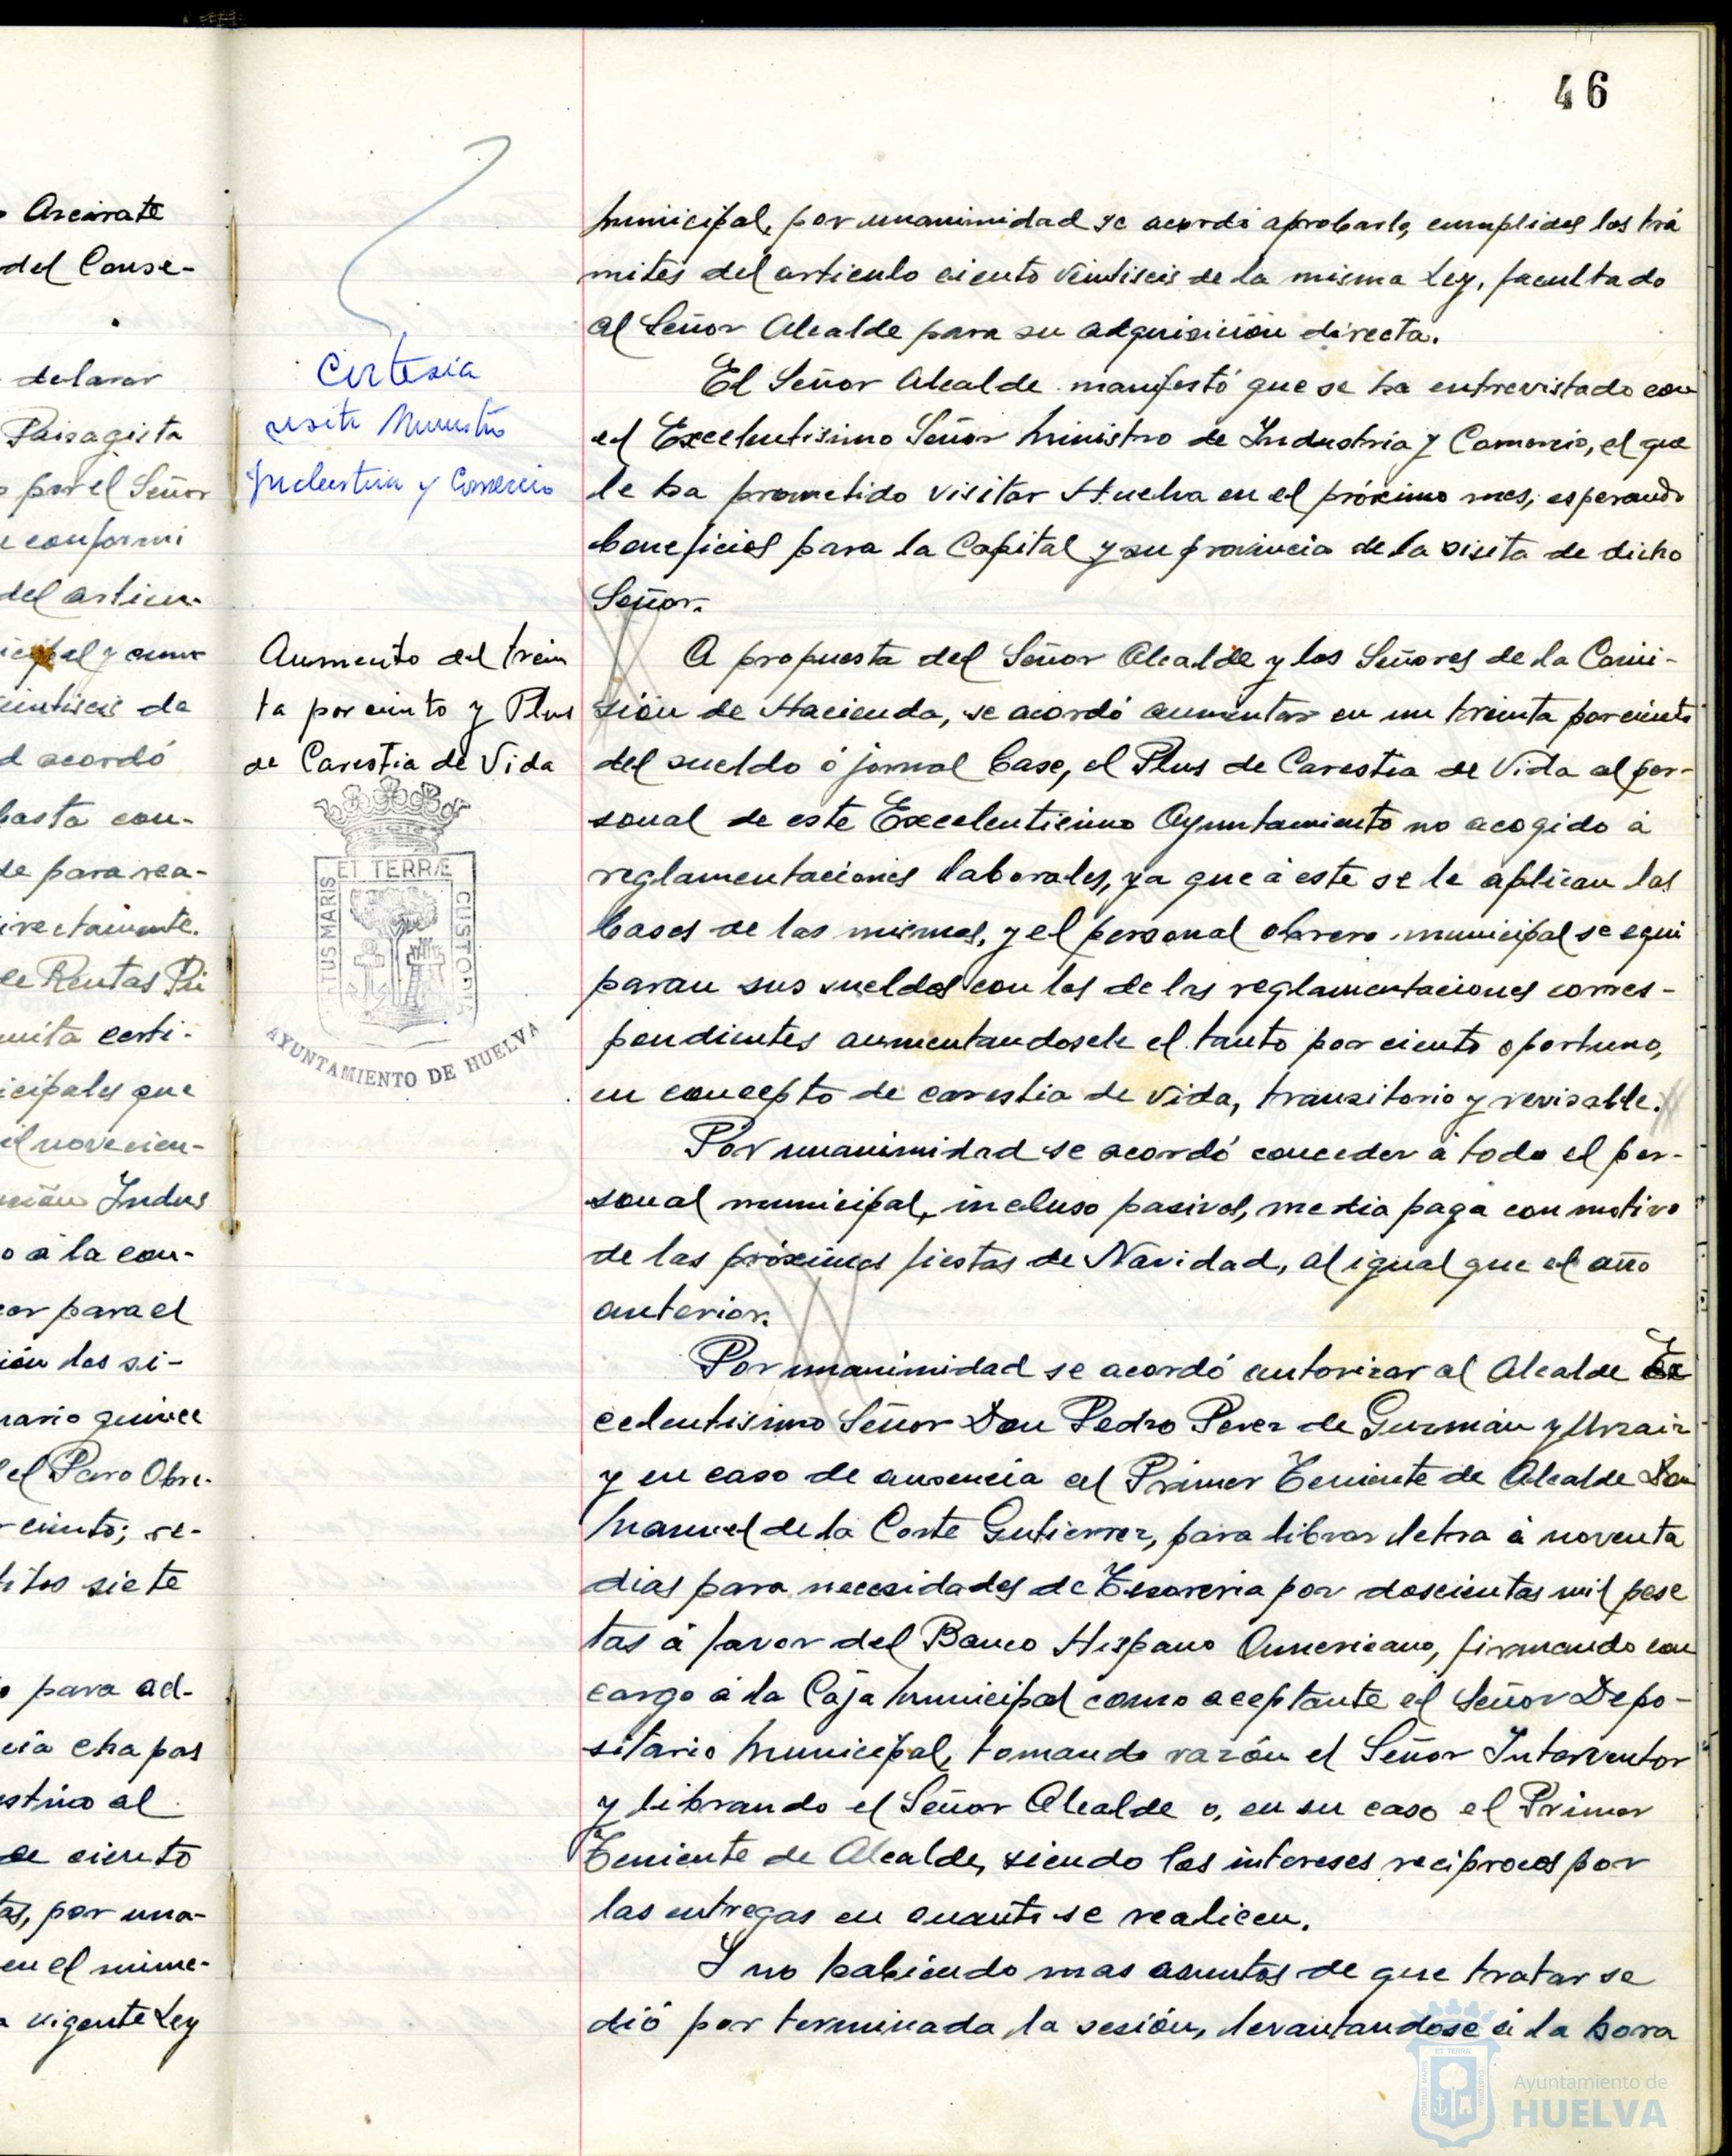 46
o Azcárate
del Conse-
delarar
Paisagista
o por el Señor
e conformi
del articu-
icipal y cum
eintiseis de
d acordó
basta con-
de para rea-
irectamente.
de Rentas Pú
mita certi-
icipales que
il novecien-
ción Indus
o á la con-
cor para el
ión los si-
nario quince
el Paro Obre-
ciento; re-
itos siete
o para ad-
cia chapas
estino al
de ciento
tas, por una-
en el núme-
a vigente Ley
Cortesia
visita Ministro
Industria y Comercio
Aumento del trein
ta por ciento y Plus
de Carestia de Vida
ET TERRÆ
CUSTODIA
AYUNTAMIENTO DE HUELVA
Municipal, por unanimidad se acordó aprobarlo, cumplidos los trá
mites del articulo ciento veintiseis de la misma Ley, facultado
al Señor Alcalde para su adquisición directa.
El Señor Alcalde manifestó que se ha entrevistado con
el Excelentisimo Señor Ministro de Industria y Comercio, el que
le ha prometido visitar Huelva en el próximo mes, esperando
beneficios para la Capital y su provincia de la visita de dicho
Señor.
A propuesta del Señor Alcalde y los Señores de la Comi-
sión de Hacienda, se acordó aumentar en un treinta por ciento
del sueldo ó jornal base, el Plus de Carestia de Vida al per-
sonal de este Excelentisimo Ayuntamiento no acogido á
reglamentaciones laborales, ya que á este se le aplican las
bases de las mismas, y el personal obrero municipal se equi
paran sus sueldos con los de las reglamentaciones corres-
pondientes aumentandosele el tanto por ciento oportuno,
en concepto de carestia de vida, transitorio y revisable.
Por unanimidad se acordó conceder á todo el per-
sonal municipal, incluso pasivos, media paga con motivo
de las próximas fiestas de Navidad, al igual que el año
anterior.
Por unanimidad se acordó autorizar al Alcalde Ex
celentisimo Señor Don Pedro Perez de Guzmán y Urzaiz
y en caso de ausencia al Primer Teniente de Alcalde Don
Manuel de la Corte Gutierrez, para librar letra á noventa
dias para necesidades de Tesoreria por doscientas mil pese
tas á favor del Banco Hispano Americano, firmando con
cargo á la Caja Municipal como aceptante el Señor Depo-
sitario Municipal, tomando razón el Señor Interventor
y librando el Señor Alcalde o, en su caso el Primer
Teniente de Alcalde, siendo los intereses reciprocos por
las entregas en cuanto se realicen.
Y no habiendo mas asuntos de que tratar se
dió por terminada la sesión, levantandose á la hora
Ayuntamiento de
HUELVA